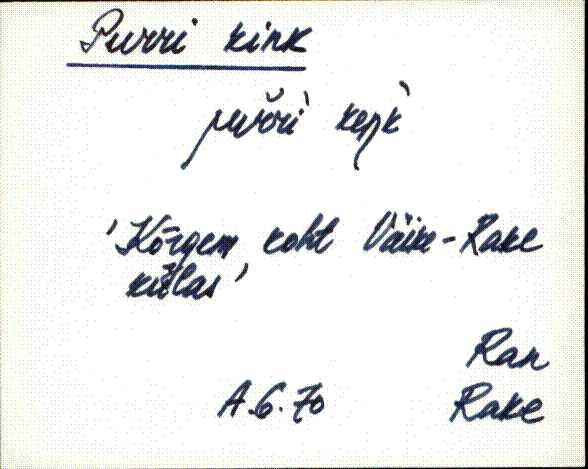 Purri kink
purri keŋk
'Kõrgem koht Väike-Rake
külas'
Ran
A.6.70 Rake